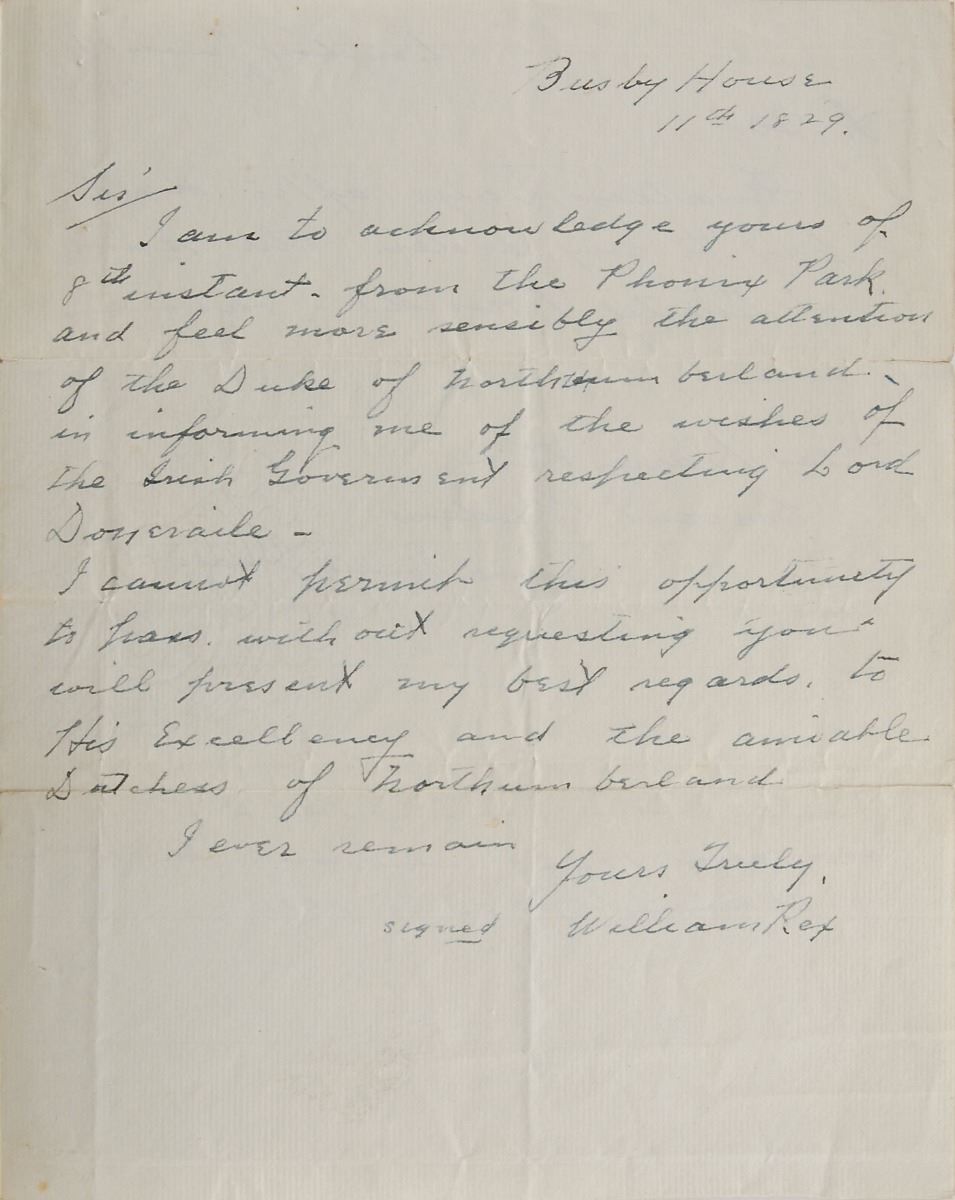 Busby House
11th 1829.
Sir
I am to acknowledge yours of
8th instant - from the Phonix Park.
and feel more sensibly the attention
of the Duke of Northumberland -
in informing me of the wishes of
the Irish Goverment respecting Lord
Doneraile -
I cannot permit this opportunety
to pass. without requesting you
will present my best regards. to
His Excellency and the amiable
Dutchess of Northumberland
I ever remain
Yours Truly.
signed William Rex